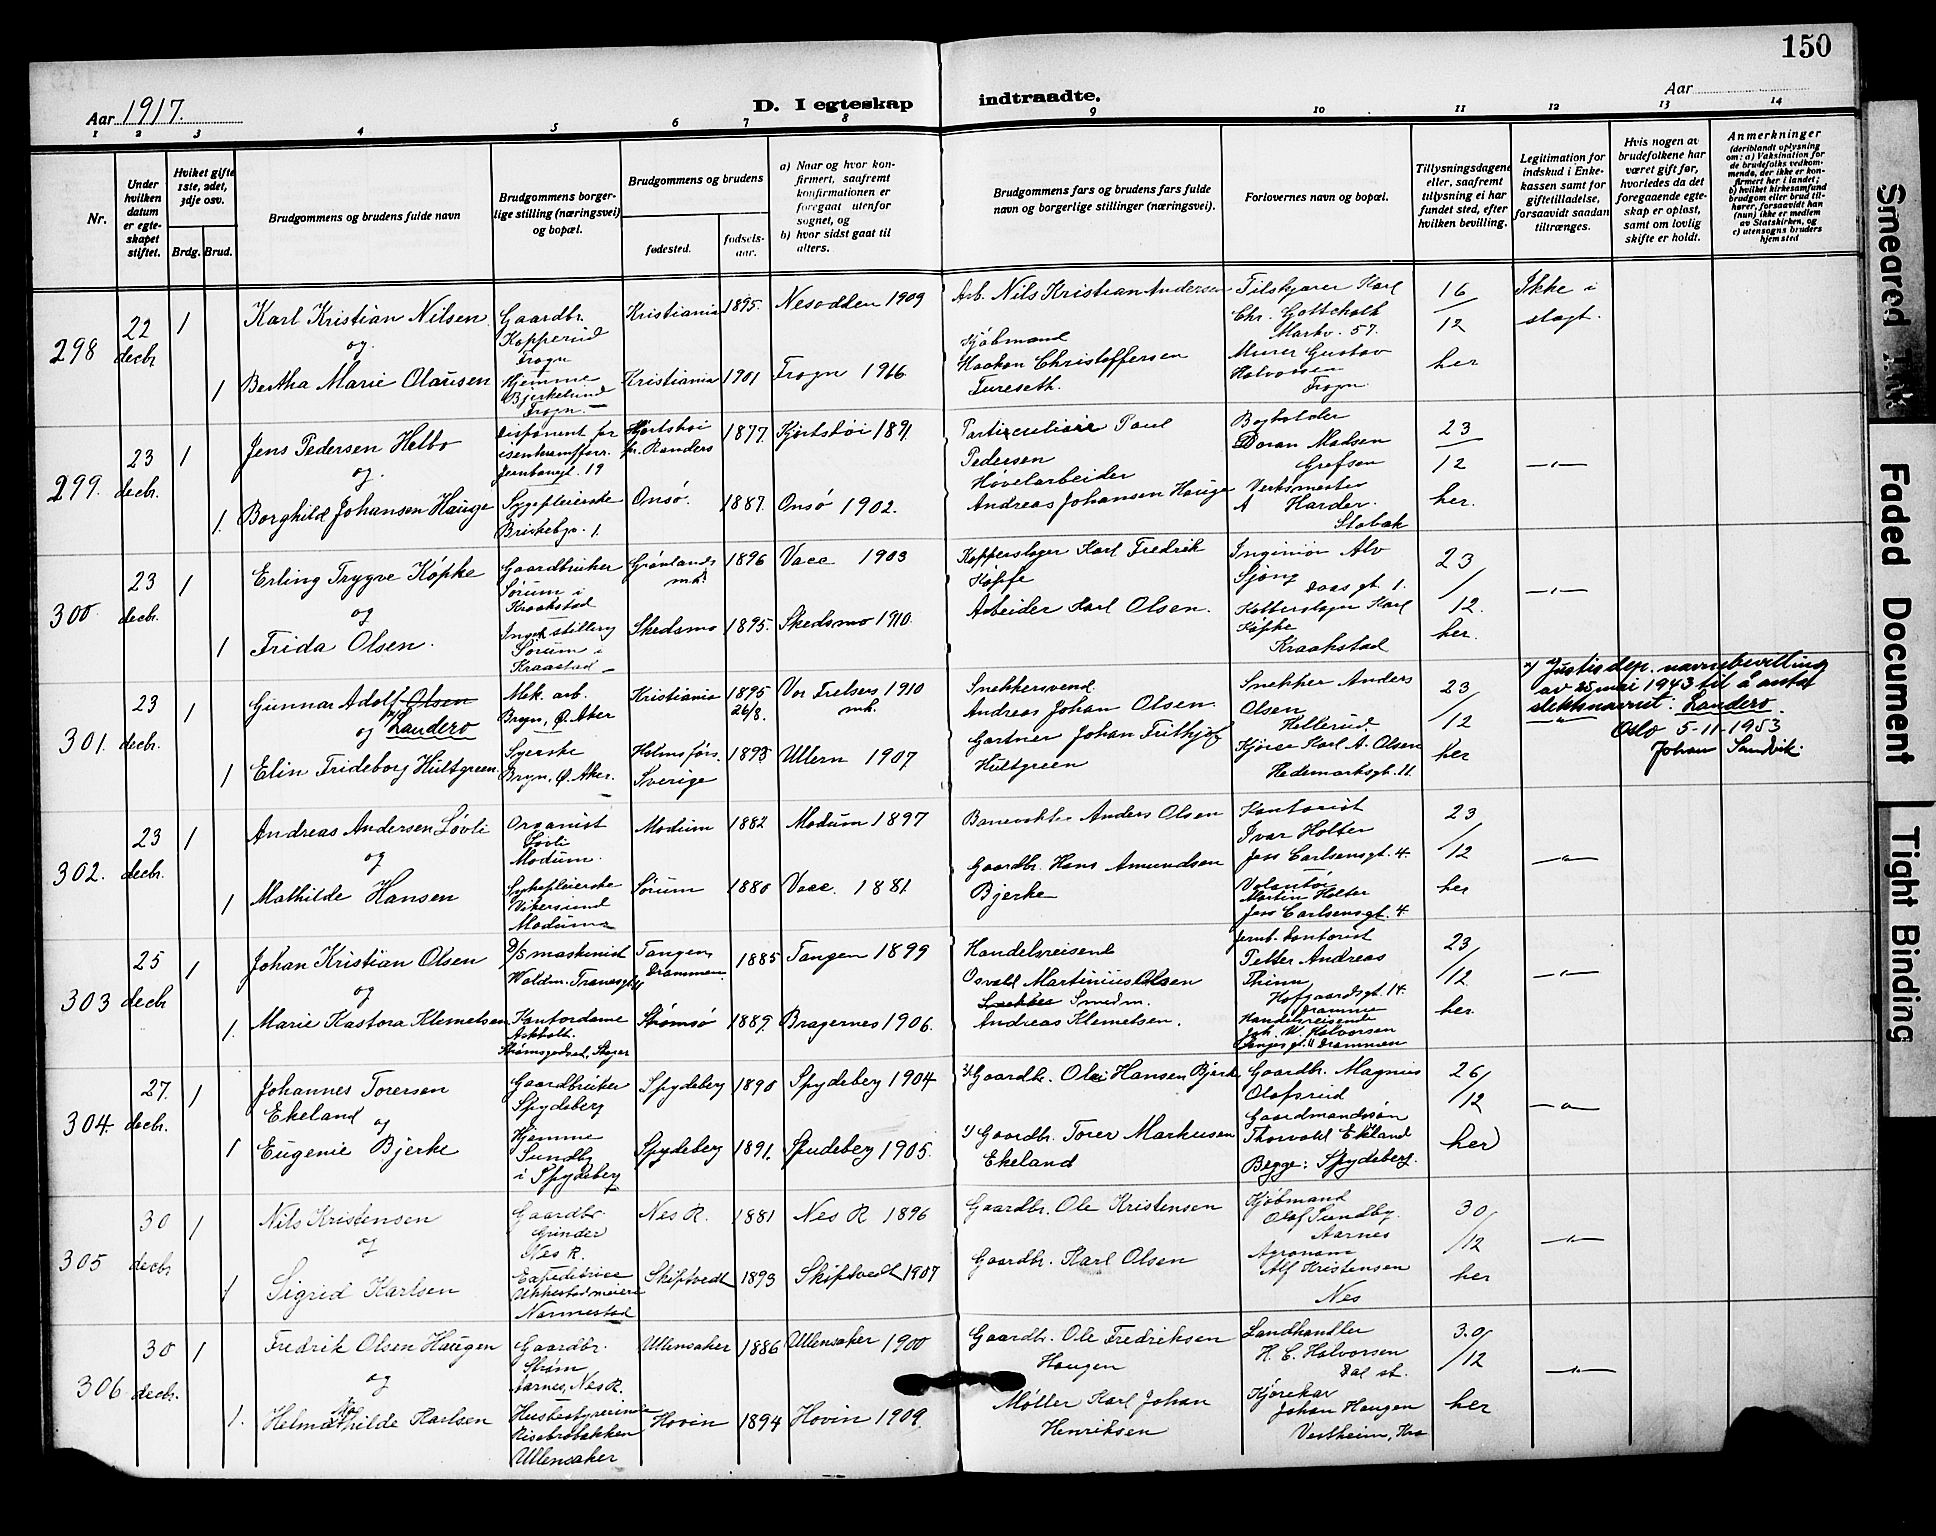 150
Aar 1917.
D. I egteskap indtraadte.
Aar
1 2 3 4 5 6 7 8 9 10 11 12 13 14
Nr.
Under hvilken datum er egteskapet stiftet.
Hvilket gifte 1ste, 2det, 3dje osv.
Brdg. Brud.
Brudgommens og brudens fulde navn
Brudgommens borgerlige stilling (næringsvei) og bopæl.
Brudgommens og brudens
fødested.
fødselsaar.
a) Naar og hvor konfirmert, saafremt konfirmationen er foregaat utenfor sognet, og
b) hvor sidst gaat til alters.
Brudgommens fars og brudens fars fulde navn og borgerlige stillinger (næringsvei).
Forlovernes navn og bopæl.
Tillysningsdagene eller, saafremt tillysning ei har fundet sted, efter hvilken bevilling.
Legitimation for indskud i Enkekassen samt for giftetilladelse, forsaavidt saadan tiltrænges.
Hvis nogen av brudefolkene har været gift før, hvorledes da det foregaaende egteskap er opløst, samt om lovlig skifte er holdt.
Anmerkninger (deriblandt oplysning om: a) Vaksination for de brudefolks vedkommende, der ikke er konfirmert her i landet; b) hvilket kirkesamfund brudgom eller brud tilhører, forsaavidt han (hun) ikke er medlem av Statskirken, og c) utensogns bruders hjemsted
298 22 decbr. 1 Karl Kristian Nilsen Gaardbr. Kopperud Frogn Kristiania 1895. Nesodden 1909 Arb. Nils Kristian Andersen Tilskjærer Karl Chr. Gottschalk Markv. 57. 16/12 Ikke i slegt.
og
1 Bertha Marie Olausen Hjemme Bjerkelund Frogn. Kristiania 1901 Frogn 1916 Kjøbmand Haakon Christoffersen Tureseth. Murer Gustav Halvorsen Frogn her
299. 23 decbr. 1 Jens Pedersen Helbo Disponent for isenkramforr. Jernbanegt. 19 Hjortshøi pr. Randers 1877. Hjortshøi 1891. Particulier Paul Pedersen Bogholder Doran Madsen Grefsen 23/12 —"—
og
1. Borghild Johansen Hauge Sygepleierske Briskebyv. 1. Onsø. 1887. Onsø 1902. Høvelarbeider Andreas Johansen Hauge Verksmester A Harder. Slabak her.
300. 23 decbr. 1 Erling Trygve Köpke Gaardbruker Sørum i Kraakstad Grønlands mh. 1896 Vace 1903 Kopperslager Karl Fredrik Köpfe Ingeniør Alv Sjong Daas gt. 1. 23/12. —"—
og
1 Frida Olsen. Ingen stilling Sørum i Kraastad Skedsmo 1895. Skedsmo 1910. Arbeider Karl Olsen. Kobberslager Karl Köpke Kraakstad her.
301. 23 decbr. 1 Gunnar Adolf Olsen Landerø Mek. arb. Bryn, Ø. Aker Kristiania 1895 26/8. Vor Frelsers mh. 1910 Snekkersvend. Andreas Johan Olsen Snekker Anders Olsen Hellerud. 23/12 —"—
og
1 Elin Frideborg Hultgreen Syerske Bryn, Ø. Aker. Holmsførs. Sverige 1893 Ullern 1907 Gartner Johan Frithjof Hultgreen Kjører Karl A. Olsen Hedemarksgt. 11. her
x) Justisdep. navnebevilling av 25 mai 1943 til å anta slektsnavnet: Landerø.
Oslo 5-11-1953
Johan Sandvik.
302. 23 decbr. 1 Andreas Andersen Løvli Organist Løvli Modum. Modum 1882 Modum 1897 Banevokter Anders Olsen Kontorist Ivar Holter Jess Carlsensgt. 4. 23/12 —"—
og
1 Mathilde Hansen Sykepleierske Vikersund Modum Sørum 1880 Vace. 1881 Gaardbr. Hans Amundsen Bjerke Volontør Martin Holter Jess Carlsensgt. 4. her
303 25 decbr 1 Johan Kristian Olsen D/S maskinist Woldm. Tranesgt. Tangen, Drammen 1885 Tangen 1899 Handelsreisend Osvald Martinius Olsen Jernb. kontorist Petter Andreas Thinn Hofgaardsgt. 14. Dramme 23/12 —"—
og
1. Marie Kastora Klemetsen Kontordame Strømsgodset, Skoger Strømsø 1889. Bragernes 1906. Snekker Smedm. Andreas Klemetsen. Handelsreisende Joh. W. Halvorsen Drammen her.
304. 27. decbr. 1 Johannes Torersen Ekeland Gaardbruker Spydeberg Spydeberg 1890 Spydeberg 1904 2/ Gaardbr. Ole Hansen Bjerke Gaardbr. Magnus Olafsrud 26/12 —"—
og
1 Eugenie Bjerke Hjemme Sundby i Spydeberg Spydeberg 1891. Spydeberg 1905. 1/ Gaardbr. Torer Markusen Ekeland Gaardmandssøn Thorvald Ekeland Begge: Spydeberg. her
305 30 decbr 1 Nils Kristensen Gaardbr. Grinder Nes R. Nes R. 1881 Nes R 1896 Gaardbr. Ole Kristensen Kjøbmand Olaf Sundby. Aarnes 30/12 —"—
og
1 Sigrid Karlsen Expeditrice Ukkestad meieri Nannestad Skiptvedt 1893 Skiptvedt 1907 Gaardbr. Karl Olsen Agronom Alf Kristensen Nes her
306. 30 decbr. 1 Fredrik Olsen Haugen Gaardbr. Strøm Aarnes, Nes R. Ullensaker 1886 Ullensaker 1900 Gaardbr. Ole Fredriksen Haugen Landhandler H. C. Halvorsen Dal st. 30/12 —"—
og
1. Helma Mathilde Karlsen Husbestyrerinde Risebrobakken Ullensaker Hovin 1894 Hovin 1909. Møller Karl Johan Henriksen Kjørekar Johan Haugen Vestheim, Kra her
Smeared Ink
Faded Document
Tight Binding